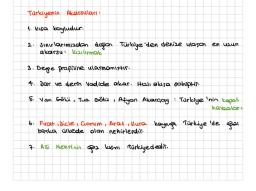 Türkiyenin Akarsuları:
1. Kısa boyludur.
2. Sınırlarımızdan doğan Türkiye'den denize ulaşan en uzun
akarsu: Kızılırmak
3. Denge profiline ulaşmamıştır.
4. Dar ve derin vadide akar. Hızlı akışa sahiptir.
5. Van Gölü, Tuz Gölü, Afyon Akarçay: Türkiye'nin kapalı
havzaları
6. Fırat, Dicle, Çoruh, Aras, Kura kaynağı Türkiye'de ağzı
başka ülkede olan nehirlerdir.
7. Asi Nehrinin ağız kısmı Türkiyededir.